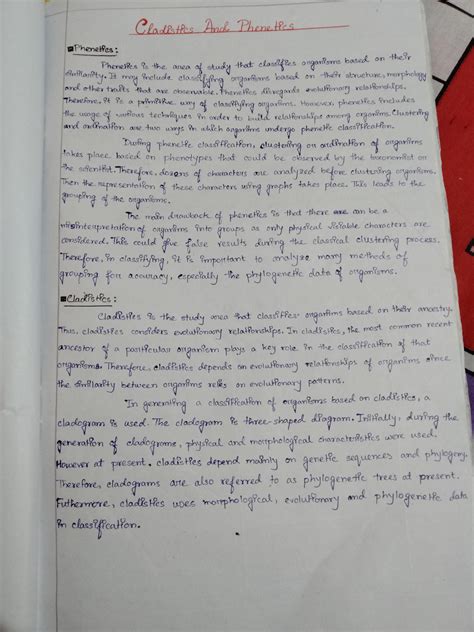 Cladistics And Phenetics
Phenetics:
Phenetics is the area of study that classifies organisms based on their
similarity. It may include classifying organisms based on their structure, morphology
and other traits that are observable. Phenetics disregards evolutionary relationships.
Therefore, it is a primitive way of classifying organisms. However, phenetics includes
the usage of various techniques in order to build relationships among organisms. Clustering
and ordination are two ways in which organisms undergo phenetic classification.
During phenetic classification, clustering or ordination of organisms
takes place based on phenotypes that could be observed by the taxonomist or
the scientist. Therefore, dozens of characters are analyzed before clustering organisms.
Then the representation of these characters using graphs takes place. This leads to the
grouping of the organisms.
The main drawback of phenetics is that there are can be a
misinterpretation of organisms into groups as only physical visible characters are
considered. This could give false results during the classical clustering process.
Therefore, in classifying, it is important to analyze many methods of
grouping for accuracy, especially the phylogenetic data of organisms.
Cladistics:
Cladistics is the study area that classifies organisms based on their ancestry.
Thus, cladistics considers evolutionary relationships. In cladistics, the most common recent
ancestor of a particular organism plays a key role in the classification of that
organisms. Therefore, cladistics depends on evolutionary relationships of organisms since
the similarity between organisms relies on evolutionary patterns.
In generating a classification of organisms based on cladistics, a
cladogram is used. The cladogram is three-shaped diagram. Initially, during the
generation of cladograms, physical and morphological characteristics were used.
However at present. cladistics depend mainly on genetic sequences and phylogeny.
Therefore, cladograms are also referred to as phylogenetic trees at present.
Futhermore, cladistics uses morphological, evolutionary and phylogenetic data
in classification.